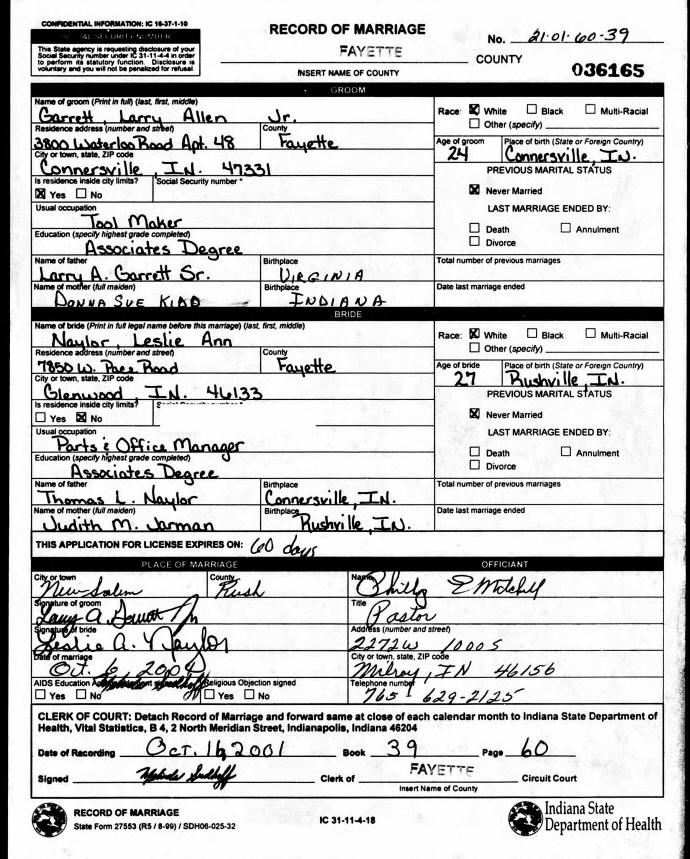 CONFIDENTIAL INFORMATION: IC 16-37-1-10
SOCIAL SECURITY NUMBER
This State agency is requesting disclosure of your
Social Security number under IC 31-11-4-4 in order
to perform its statutory function. Disclosure is
voluntary and you will not be penalized for refusal.
RECORD OF MARRIAGE
FAYETTE
COUNTY
INSERT NAME OF COUNTY
No. 21-01-60-39
036165
GROOM
Name of groom (Print in full) (last, first, middle)
Garrett, Larry Allen Jr.
Residence address (number and street) County
3800 Waterloo Road Apt. 48 Fayette
City or town, state, ZIP code
Connersville, IN. 47331
Is residence inside city limits? Social Security number *
☒ Yes ☐ No
Usual occupation
Tool Maker
Education (specify highest grade completed)
Associates Degree
Name of father Birthplace
Larry A. Garrett Sr. VIRGINIA
Name of mother (full maiden) Birthplace
DONNA SUE KIDD INDIANA
Race: ☒ White ☐ Black ☐ Multi-Racial
☐ Other (specify)
Age of groom Place of birth (State or Foreign Country)
24 Connersville, IN.
PREVIOUS MARITAL STATUS
☒ Never Married
LAST MARRIAGE ENDED BY:
☐ Death ☐ Annulment
☐ Divorce
Total number of previous marriages
Date last marriage ended
BRIDE
Name of bride (Print in full legal name before this marriage) (last, first, middle)
Naylor, Leslie Ann
Residence address (number and street) County
7850 W. Road Fayette
City or town, state, ZIP code
Glenwood, IN. 46133
Is residence inside city limits? Social Security number *
☐ Yes ☒ No
Usual occupation
Parts & Office Manager
Education (specify highest grade completed)
Associates Degree
Name of father Birthplace
Thomas L. Naylor Connersville, IN.
Name of mother (full maiden) Birthplace
Judith M. Jarman Rushville, IN.
Race: ☒ White ☐ Black ☐ Multi-Racial
☐ Other (specify)
Age of bride Place of birth (State or Foreign Country)
27 Rushville, IN.
PREVIOUS MARITAL STATUS
☒ Never Married
LAST MARRIAGE ENDED BY:
☐ Death ☐ Annulment
☐ Divorce
Total number of previous marriages
Date last marriage ended
THIS APPLICATION FOR LICENSE EXPIRES ON: 60 days
PLACE OF MARRIAGE
City or town County
New Salem Rush
Signature of groom
Larry A. Garrett Jr
Signature of bride
Leslie A. Naylor
Date of marriage
Oct. 6, 200
AIDS Education Religious Objection signed
☐ Yes ☐ No ☐ Yes ☐ No
OFFICIANT
Name
Philip E Mitchell
Title
Pastor
Address (number and street)
2272 W 1000 S
City or town, state, ZIP code
Milroy, IN 46156
Telephone number
765 629-2125
CLERK OF COURT: Detach Record of Marriage and forward same at close of each calendar month to Indiana State Department of
Health, Vital Statistics, B 4, 2 North Meridian Street, Indianapolis, Indiana 46204
Date of Recording Oct. 16, 2001 Book 39 Page 60
Signed Clerk of FAYETTE Circuit Court
Insert Name of County
RECORD OF MARRIAGE
State Form 27553 (R5 / 8-99) / SDH06-025-32
IC 31-11-4-18
Indiana State
Department of Health